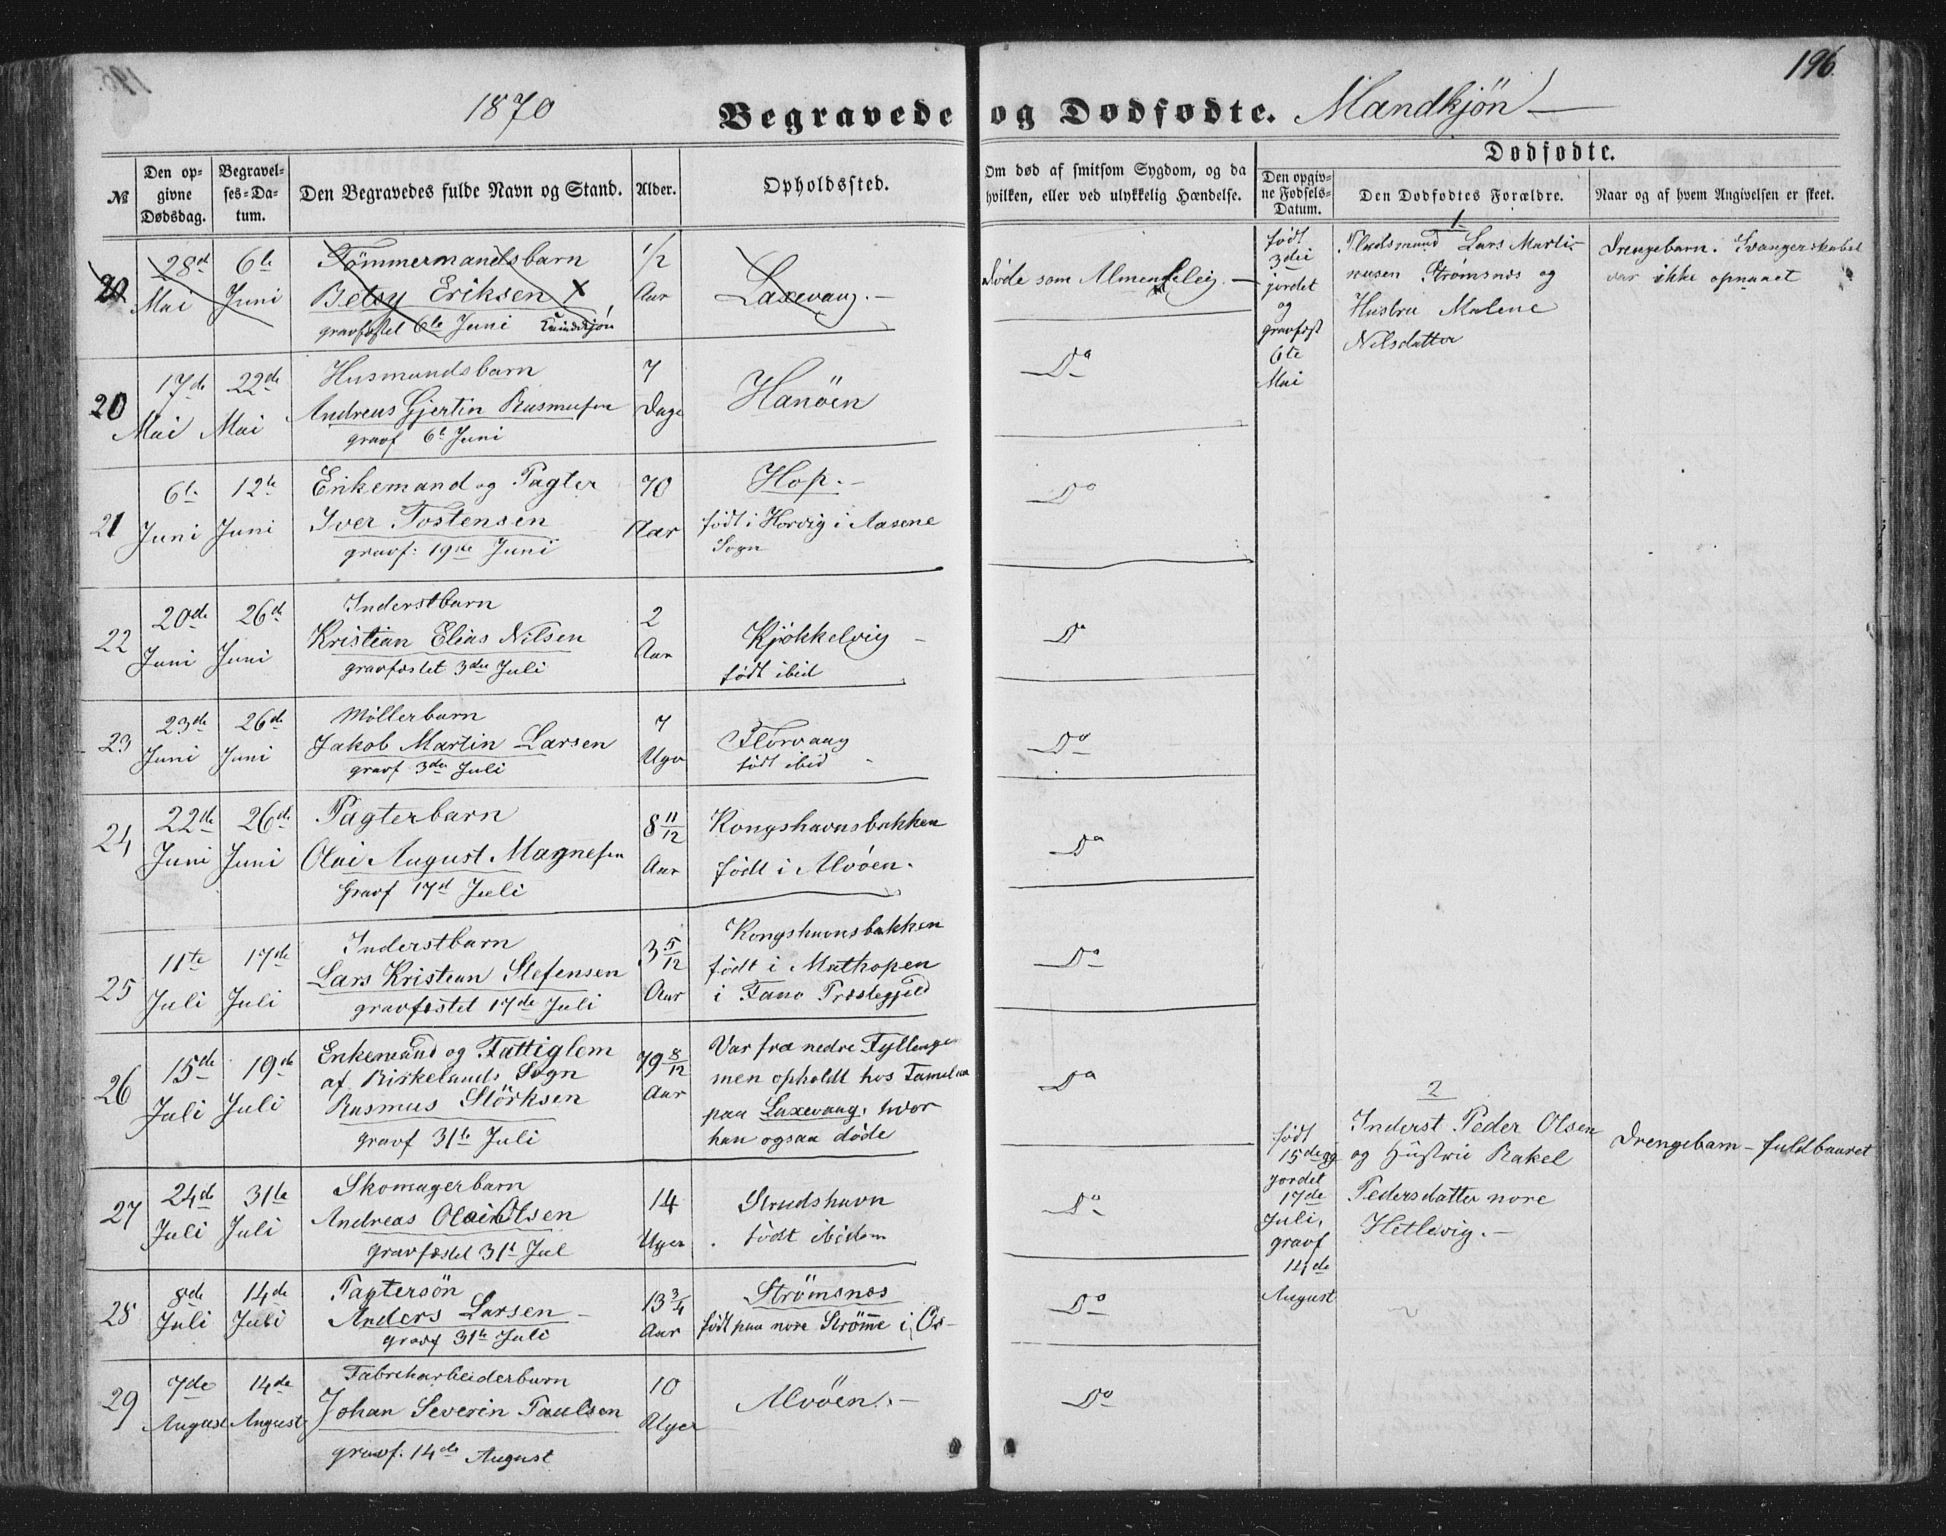 196.
1870
Begravede og Dødfødte. Mandkjøn
№
Den opgivne Dødsdag.
Begravelses-Datum.
Den Begravedes fulde Navn og Stand.
Alder.
Opholdssted.
Om død af smitsom Sygdom, og da hvilken, eller ved ulykkelig Hændelse.
Dødfødte.
Den opgivne Fødsels-Datum.
Den Dødfødtes Forældre.
Naar og af hvem Angivelsen er skeet.
20
28de Mai
6te Juni
Tömmermandsbarn
Betsy Eriksen X
gravfæstet 6te Juni Kvindekjøn
1/2 Aar
Laxevaag.-
Døde som Almen
20
17de Mai
22de Mai
Husmandsbarn
Andreas Gjertin Rasmusen
gravf 6t Juni
7 Dage
Hanöen
Do
21
6te Juni
12te Juni
Enkemand og Pagter
Iver Tostensen
gravf: 19de Juni
70 Aar
Hop.-
født i Hordvig i Aasene
Sogn
Do
22
20de Juni
26de Juni
Inderstbarn
Kristian Elias Nilsen
gravfæstet 3die Juli
2 Aar
Kjøkkelvig -
født ibid
Do
23
23de Juni
26de Juni
Møllerbarn
Jakob Martin Larsen
gravf 3die Juli
7 Uger
Florvaag
født ibid
Do
24
22de Juni
26de Juni
Pagterbarn
Olai August Magnesen
Gravf 17d Juli
8 11/12 Aar
Kongshavnsbakken
født i Alvöen.
Do
25
11te Juli
17de Juli
Inderstbarn
Lars Kristian Stefensen
gravfæstet 17de Juli
3 5/12 Aar
Kongshavnsbakken
født i Mathopen
i Fano Præstegjeld
Do
26
15de Juli
19de Juli
Enkemand og Fattiglem
af Birkelands Sogn
Rasmus Störksen
gravf 31te Juli
79 8/12 Aar
Var fra nedre Fyllinge
men opholdt hos Familien
paa Laxevaag, hvor
han ogsaa døde
Do
27
24de Juli
31te Juli
Skomagerbarn
Andreas Olai Olsen
gravfæstet 31t Jul
14 Uger
Strudshavn
født ibidem
Do
28
8de Juli
14de Juli
Pagtersön
Anders Larsen -
gravf 31te Juli
13 3/4 Aar
Strömsnæs
født paa nore Strømme i Os-
Do
29
7de August
14de August
Fabrikarbeiderbarn
Johan Severin Paulsen
gravf. 14de August
10 Uger
Alvöen.-
Do
født
3die
jordet
og
gravfæst
6te
Mai
1
Pladsmand Lars Marti-
nusen Strømsnæs og
Hustru Malene
Nilsdatter
Drengebarn. Svangerskabet
var ikke opnaaet
født
15de og
jordet
17de
Juli,
gravf
14de
August
2
Inderst Peder Olsen
og Hustrue Rakel
Pedersdatter nore
Hetlevig.-
Drengebarn - fuldbaaret